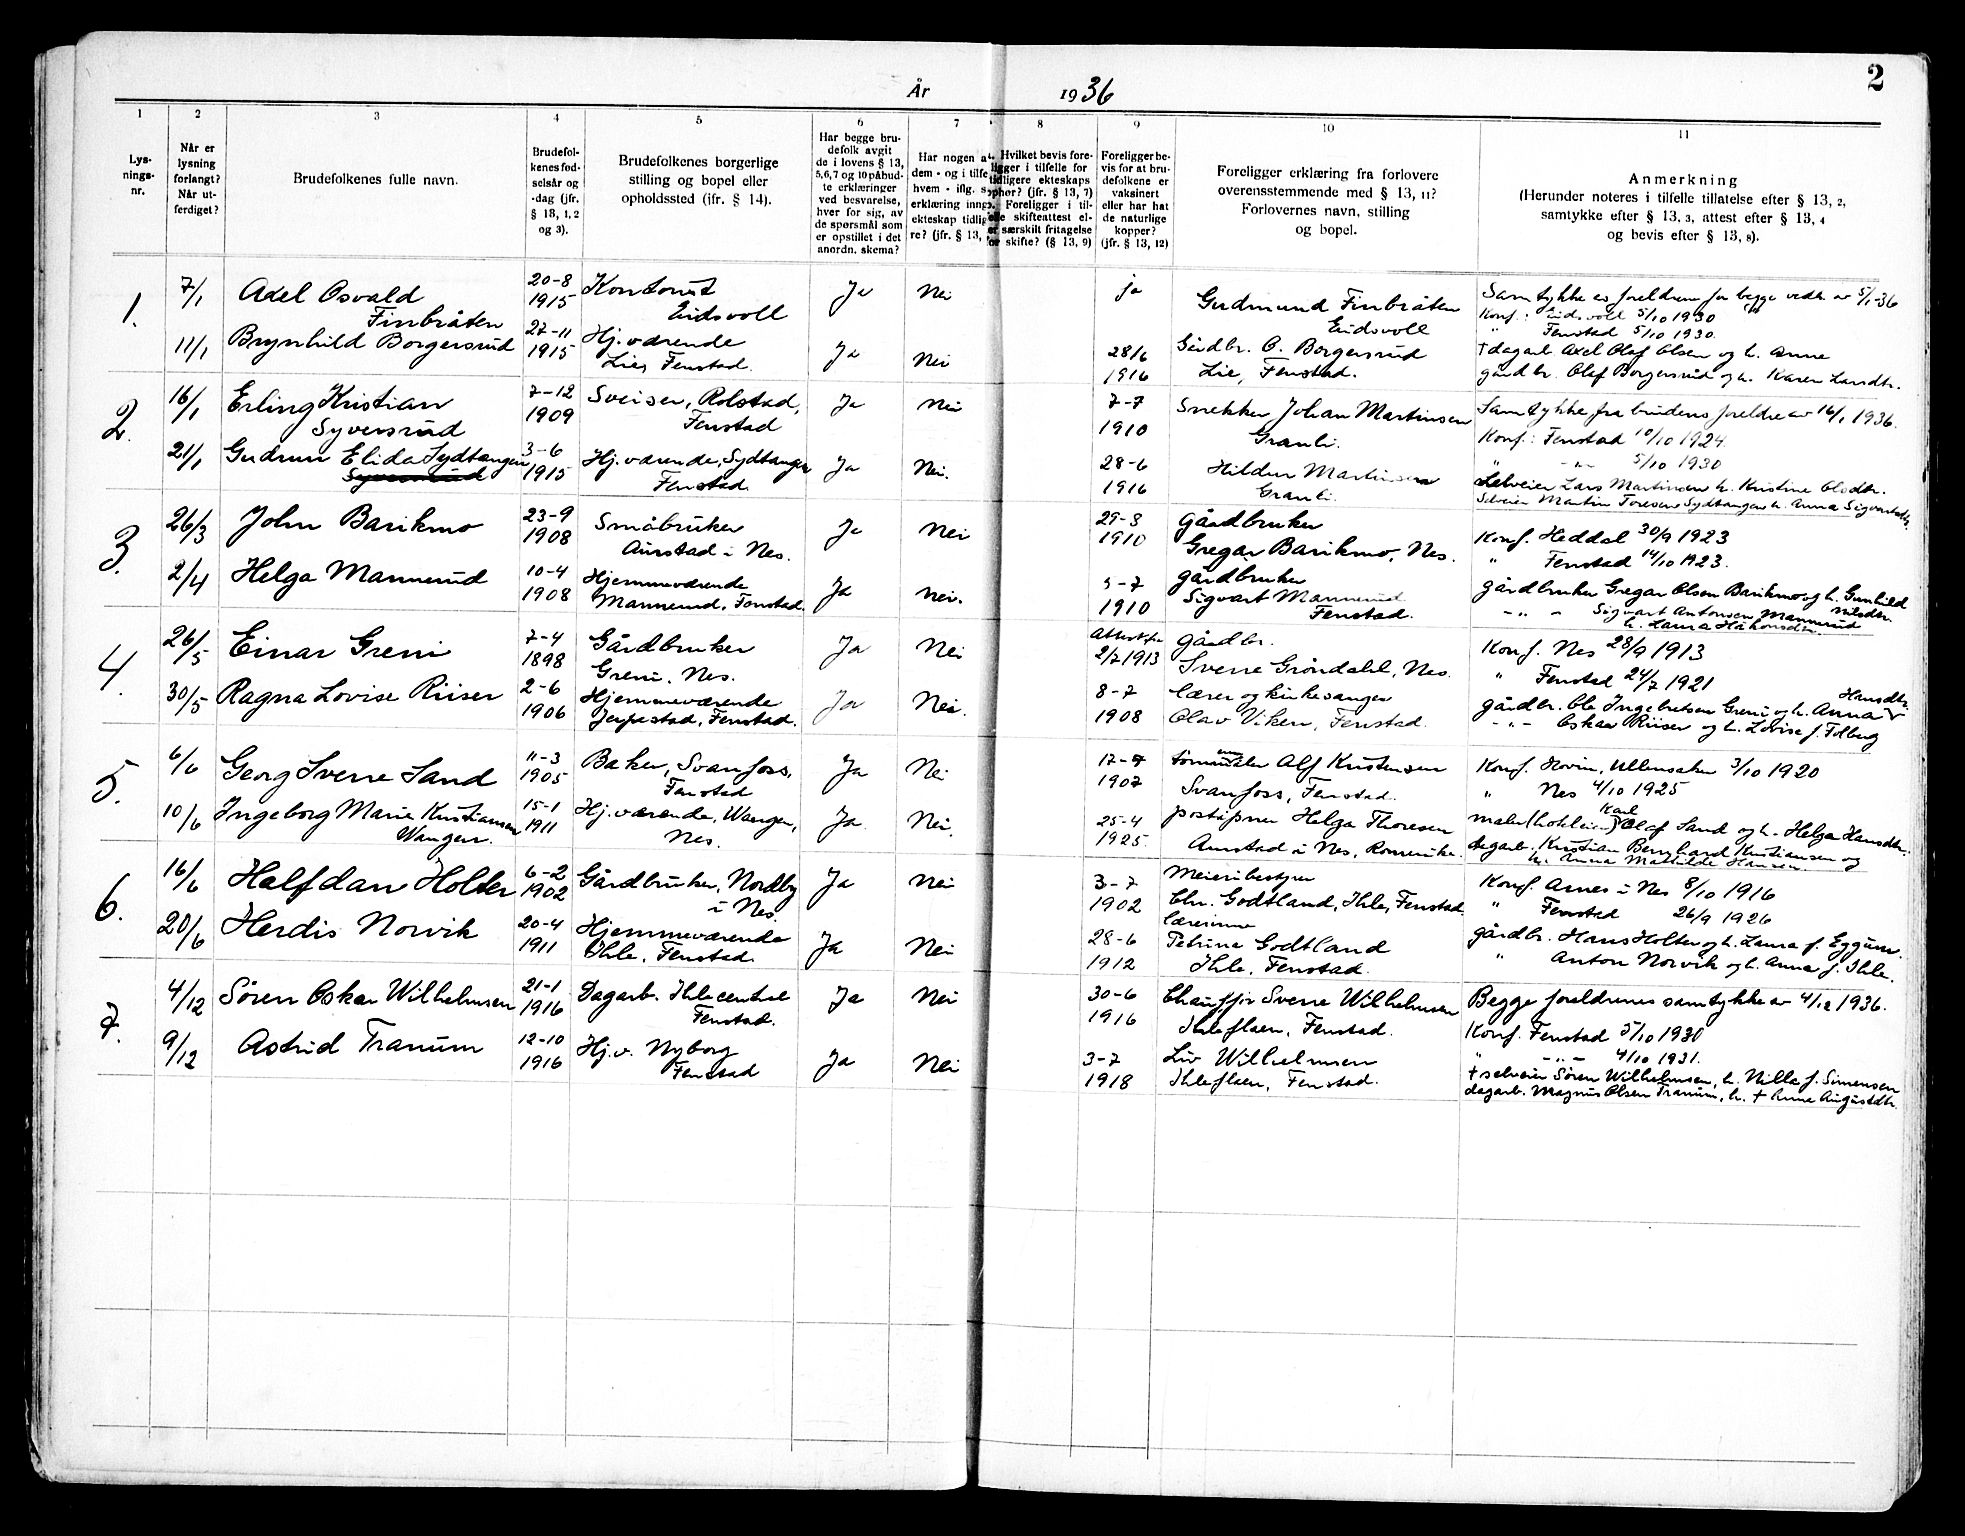 År 1936
2
1 2 3 4 5 6 7 8 9 10 11
Lys-
nings-
nr.
Når er
lysning
forlangt?
Når ut-
ferdiget?
Brudefolkenes fulle navn.
Brudefol-
kenes fød-
selsår og
-dag (jfr.
§ 13, 1, 2
og 3).
Brudefolkenes borgerlige
stilling og bopel eller
opholdssted (jfr. § 14).
Har begge bru-
defolk avgit
de i lovens § 13,
5,6,7 og 10 påbud-
te erklæringer
ved besvarelse,
hver for sig, av
de spørsmål som
er opstillet i det
anordn. skema?
Har nogen a
dem - og i tilfe
hvem - iflg. s
erklæring inng.
ekteskap tidlig
re? (jfr. § 13,
Hvilket bevis fore-
ligger i tilfelle for
tidligere ekteskaps
ophør? (jfr. § 13, 7)
Foreligger i til-
felle skifteattest el-
særskilt fritagelse
for skifte? (§ 13, 9)
Foreligger be-
vis for at bru-
defolkene er
vaksinert
eller har hat
de naturlige
kopper?
(jfr. § 13, 12)
Foreligger erklæring fra forlovere
overensstemmende med § 13, 11?
Forlovernes navn, stilling
og bopel.
Anmerkning
(Herunder noteres i tilfelle tillatelse efter § 13, 2,
samtykke efter § 13, 3, attest efter § 13, 4
og bevis efter § 13, 8).
1.
7/1 Axel Osvald
Finbråten
20-8
1915
Kontorist
Eidsvoll
Ja Nei ja
Gudmund Finbråten
Eidsvoll
Samtykke av foreldrene for begge vedk. av 5/1-36
Konf: Eidsvoll 5/10 1930
" Fenstad 5/10 1930.
11/1 Brynhild Borgersrud
27-11
1915
Hj.værende
Lie, Fenstad.
Ja Nei
28/6
1916
Gårdbr. O. Borgersrud
Lie, Fenstad.
† dagarb. Axel Olaf Olsen og h. Anne
gårdbr. Olaf Borgersrud og h. Karen Larsdtr.
2.
16/1 Erling Kristian
Syversrud
7-12
1909
Sveiser, Rolstad,
Fenstad
Ja Nei
7-7
1910
Snekker Johan Martinsen
Granli.
Samtykke fra brudens foreldre av 16/1 1936.
Konf: Fenstad 10/10 1924.
21/1 Gudrun Elida Sydtangen
Syversrud
3-6
1915
Hj.værende, Sydtangen
Fenstad.
Ja Nei.
28-6
1916
Hildur Martinsen
Granli.
" -"- 5/10 1930
Selveier Lars Martinsen h. Kristine Olsdtr.
Selveier Martin Toresen Sydtangen h. Anna Sigvartsdtr.
3.
26/3 John Barikmo
23-9
1908
Småbruker
Aurstad i Nes.
Ja Nei
29-3
1910
Gårdbruker
Gregar Barikmo, Nes.
Konf. Heddal 30/9 1923
" Fenstad 14/10 1923.
2/4 Helga Mannerud
10-4
1908
Hjemmeværende
Mannerud, Fenstad.
Ja Nei.
5-7
1910
gårdbruker
Sigvart Mannerud
Fenstad.
gårdbruker Gregar Olsen Barikmo og h. Gunhild
Nilsdtr.
-"- Sigvart Antonsen Mannerud
h. Laura Håkonsdtr.
4.
26/5 Einar Greni
7-4
1898
Gårdbruker
Greni, Nes.
Ja Nei
Attest fra
2/7 1913
Gårdbr.
Sverre Gröndahl, Nes.
Konf. Nes 28/9 1913
" Fenstad 24/7 1921
30/5 Ragna Lovise Riiser
2-6
1906
Hjemmeværende
Jerpestad, Fenstad.
Ja Nei.
8-7
1908
Lærer og kirkesanger
Olav Viken, Fenstad.
gårdbr. Ole Ingebretsen Greni og h. Anna Hansdtr.
-"- Oskar Riiser og h. Lovise f. Folberg
5.
6/6 Georg Sverre Sand
11-3
1905
Baker, Svanfoss,
Fenstad
Ja Nei
17-7
1907
Alf Kristensen
Svanfoss, Fenstad.
Konf. Hovin, Ullensaker 3/10 1920
" Nes 4/10 1925
10/6 Ingeborg Marie Kristiansen
Wangen.
15-1
1911
Hj.værende, Wangen,
Nes.
Ja Nei.
25-4
1925.
poståpner Helga Thoresen
Aurstad i Nes, Romerike.
maler (hoteleier) Karl Olaf Sand og h. Helga Hansdtr.
dagarb. Kristian Bernhard Kristiansen og
h. Anna Mathilde Hansen.
6.
16/6 Halfdan Holter
6-2
1902
Gårdbruker, Nordby
i Nes.
Ja Nei
3-7
1902
Meieribestyrer
Chr. Godtland, Ihle, Fenstad.
Konf. Arnes i Nes 8/10 1916
" Fenstad 26/9 1926
20/6 Herdis Norvik
20-4
1911
Hjemmeværende
Ihle, Fenstad.
Ja Nei
28-6
1912
Lærerinne
Petrine Godtland
Ihle, Fenstad.
gårdbr. Hans Holter og h. Laura f. Eggum.
" Anton Norvik og h. Anna f. Ihle.
7.
4/12 Sören Oskar Wilhelmsen
21-1
1916
Dagarb. Ihle central
Fenstad.
Ja Nei
30-6
1916
Chauffør Sverre Wilhelmsen
Ihleflaen, Fenstad.
Begge foreldrenes samtykke av 4/12 1936.
Konf. Fenstad 5/10 1930
9/12 Astrid Tranum
12-10
1916
Hj.v. Nyborg
Fenstad
Ja Nei
3-7
1918
Liv Wilhelmsen
Ihleflaen, Fenstad.
" -"- 4/10 1931.
† selveier Sören Wilhelmsen, h. Nille f. Simensen
dagarb. Magnus Olsen Tranum, h. † Anne Augustdtr.